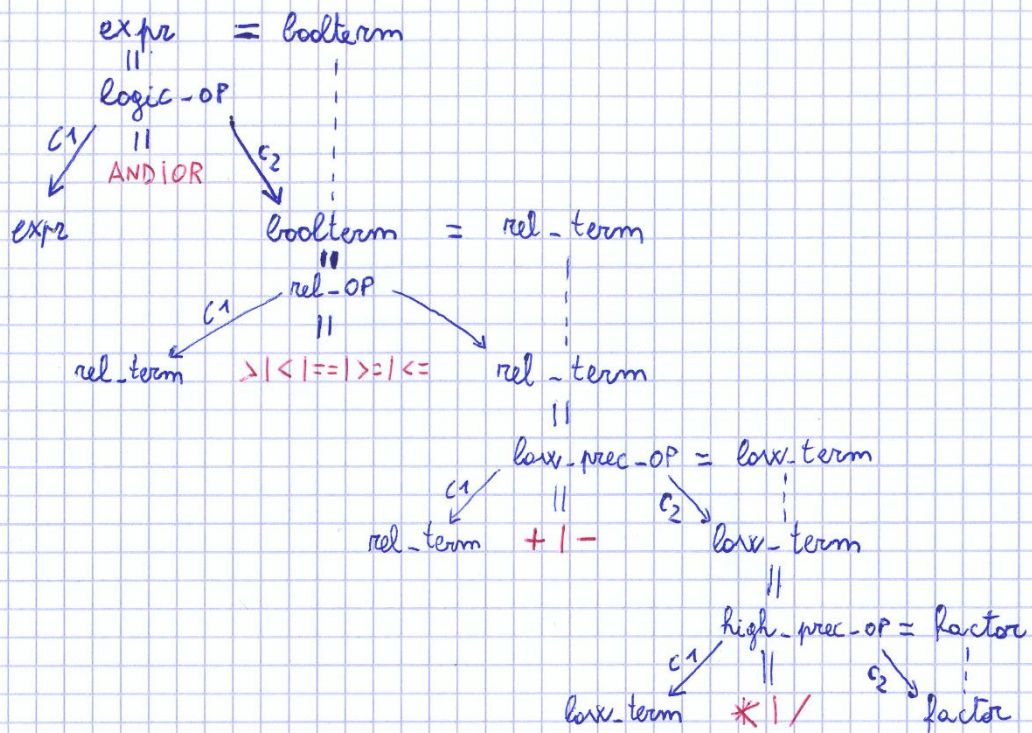 expr = boolterm
||
logic-OP
C1 || C2
AND|OR
expr boolterm = rel-term
||
rel-OP
C1 ||
rel-term >|<|==|>=|<= rel-term
||
low-prec-OP = low-term
C1 || C2
rel-term +|- low-term
||
high-prec-OP = factor
C1 || C2
low-term *|/ factor